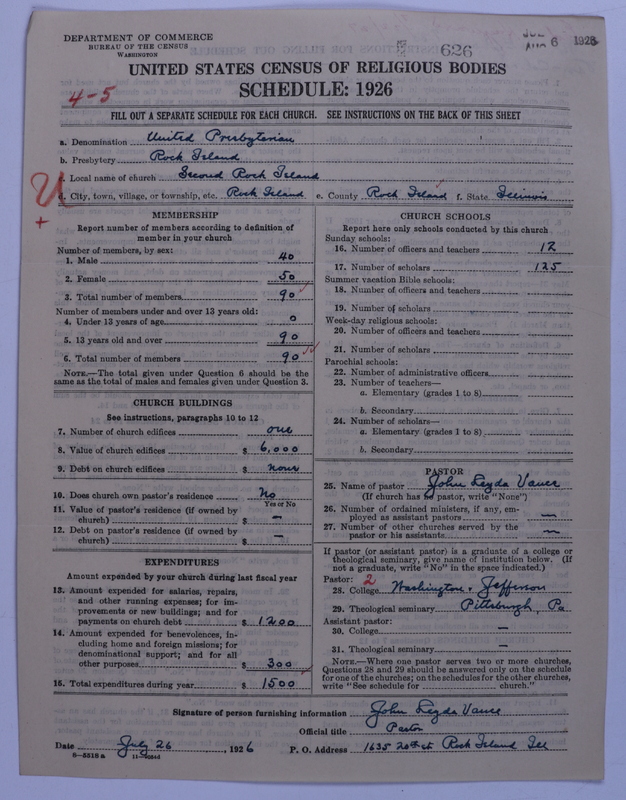 DEPARTMENT OF COMMERCE
BUREAU OF THE CENSUS
WASHINGTON
626
6 1926
UNITED STATES CENSUS OF RELIGIOUS BODIES
SCHEDULE: 1926
4-5
FILL OUT A SEPARATE SCHEDULE FOR EACH CHURCH. SEE INSTRUCTIONS ON THE BACK OF THIS SHEET
a. Denomination United Presbyterian
b. Presbytery Rock Island
c. Local name of church Second Rock Island
d. City, town, village, or township, etc. Rock Island e. County Rock Island f. State Illinois
MEMBERSHIP
Report number of members according to definition of
member in your church
Number of members, by sex:
1. Male 40
2. Female 50
3. Total number of members 90
Number of members under and over 13 years old:
4. Under 13 years of age 0
5. 13 years old and over 90
6. Total number of members 90
NOTE.—The total given under Question 6 should be the
same as the total of males and females given under Question 3.
CHURCH BUILDINGS
See instructions, paragraphs 10 to 12
7. Number of church edifices one
8. Value of church edifices $ 6,000
9. Debt on church edifices $ none
10. Does church own pastor's residence No
Yes or No
11. Value of pastor's residence (if owned by
church) $ —
12. Debt on pastor's residence (if owned by
church) $ —
EXPENDITURES
Amount expended by your church during last fiscal year
13. Amount expended for salaries, repairs,
and other running expenses; for im-
provements or new buildings; and for
payments on church debt $ 1200
14. Amount expended for benevolences, in-
cluding home and foreign missions; for
denominational support; and for all
other purposes $ 300
15. Total expenditures during year $ 1500
CHURCH SCHOOLS
Report here only schools conducted by this church
Sunday schools:
16. Number of officers and teachers 12
17. Number of scholars 125
Summer vacation Bible schools:
18. Number of officers and teachers
19. Number of scholars
Week-day religious schools:
20. Number of officers and teachers
21. Number of scholars
Parochial schools:
22. Number of administrative officers
23. Number of teachers—
a. Elementary (grades 1 to 8)
b. Secondary
24. Number of scholars—
a. Elementary (grades 1 to 8)
b. Secondary
PASTOR
25. Name of pastor John Leyda Vance
(If church has no pastor, write "None")
26. Number of ordained ministers, if any, em-
ployed as assistant pastors —
27. Number of other churches served by the
pastor or his assistants —
If pastor (or assistant pastor) is a graduate of a college or
theological seminary, give name of institution below. (If
not a graduate, write "No" in the space indicated.)
Pastor: 2
28. College Washington & Jefferson
29. Theological seminary Pittsburgh, Pa
Assistant pastor:
30. College —
31. Theological seminary —
NOTE.—Where one pastor serves two or more churches,
Questions 28 and 29 should be answered only on the schedule
for one of the churches; on the schedules for the other churches,
write "See schedule for church."
Signature of person furnishing information John Leyda Vance
Official title Pastor
Date July 26, 1926 P. O. Address 1635 20th st Rock Island Ill
8—5518 a